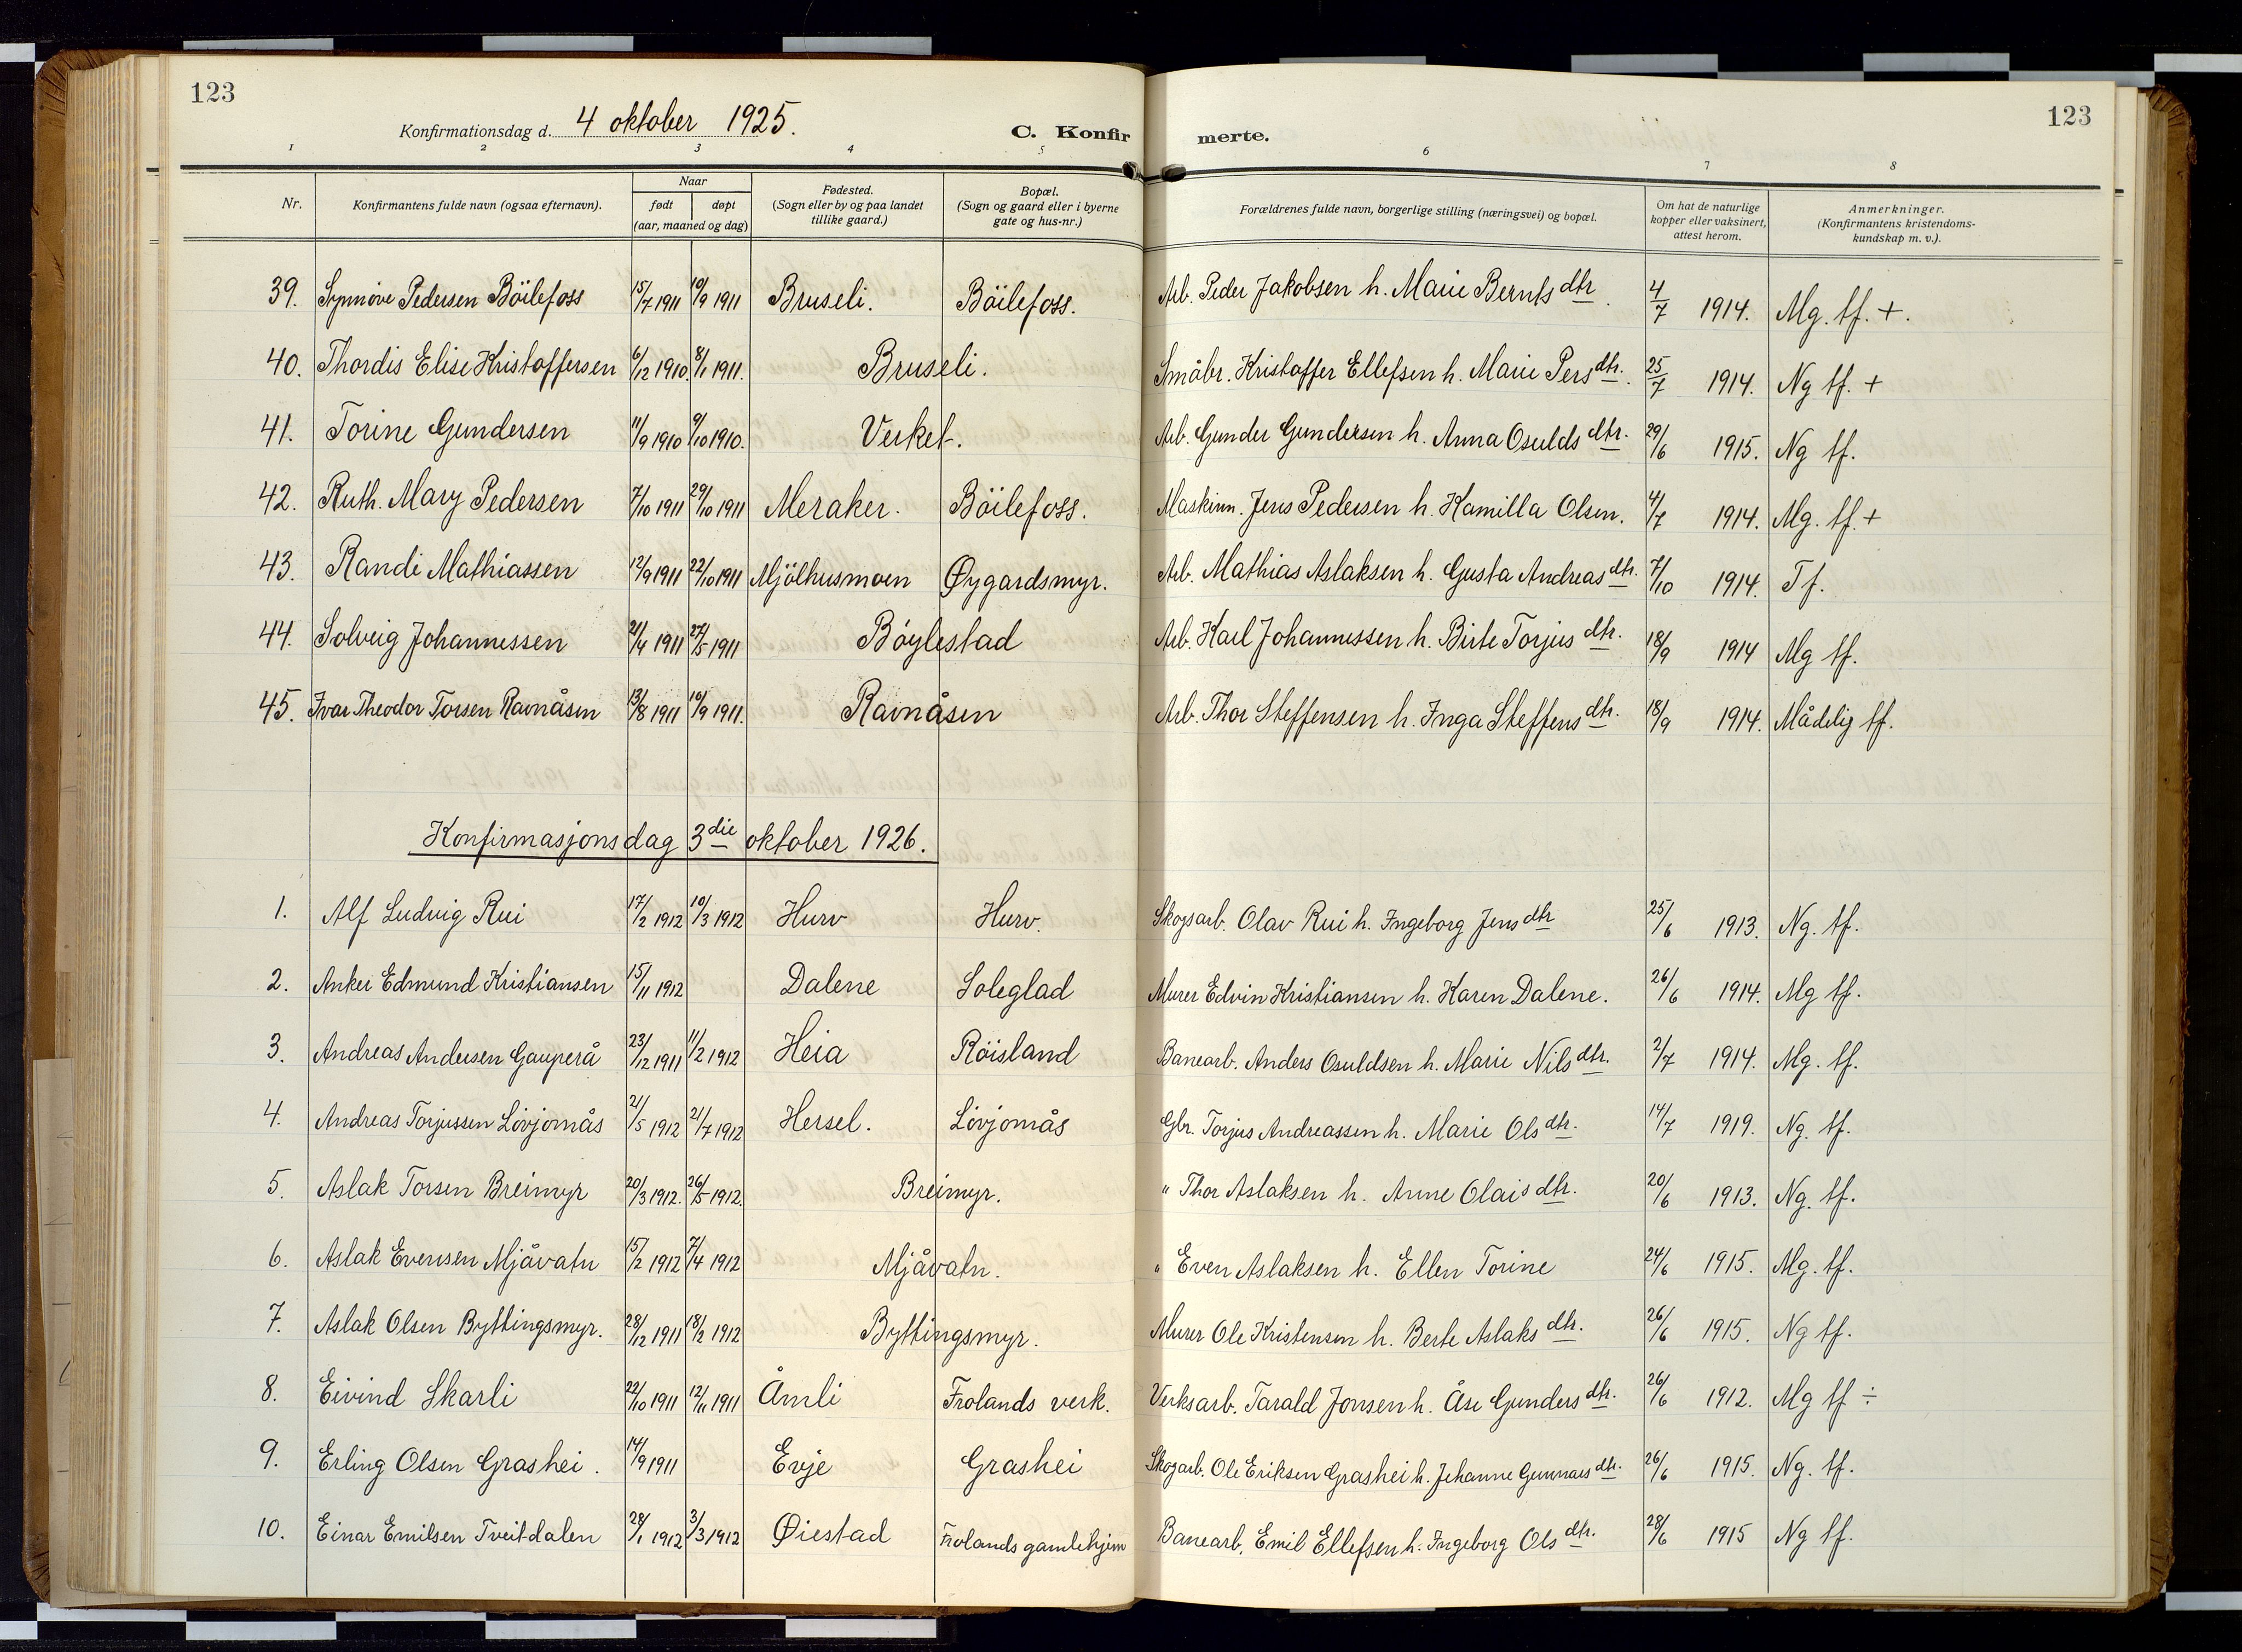 123
123
Konfirmationsdag d. 4 oktober 1925.
C. Konfirmerte.
1 2 3 4 5 6 7 8
Nr.
Konfirmantens fulde navn (ogsaa efternavn).
Naar
født døpt
(aar, maaned og dag)
Fødested.
(Sogn eller by og paa landet
tillike gaard.)
Bopæl.
(Sogn og gaard eller i byerne
gate og hus-nr.)
Forældrenes fulde navn, borgerlige stilling (næringsvei) og bopæl.
Om hat de naturlige
kopper eller vaksinert,
attest herom.
Anmerkninger.
(Konfirmantens kristendoms-
kundskap m. v.).
39. Synnöve Pedersen Böilefoss 15/7 1911 10/9 1911 Bruseli. Böilefoss. Arb. Peder Jakobsen h. Marie Bernts dtr. 4/7 1914. Mg. tf. +.
40. Thordis Elise Kristoffersen 6/12 1910. 8/1 1911. Bruseli. Småbr. Kristoffer Ellefsen h. Marie Pers dtr. 25/7 1914. Ng tf. +
41. Torine Gundersen 11/9 1910 9/10 1910. Verket. Arb. Gunder Gundersen h. Anna Osulds dtr. 29/6 1915. Ng tf.
42. Ruth. Mary Pedersen 7/10 1911 29/10 1911 Meraker. Böilefoss. Maskinn. Jens Pedersen h. Kamilla Olsen. 4/7 1914. Mg. tf. +
43. Randi Mathiassen 12/9 1911 22/10 1911 Mjölhusmoen Øygardsmyr. Arb. Mathias Aslaksen h. Gusta Andreas dtr. 7/10 1914. Tf.
44. Solveig Johannessen 21/4 1911 27/5 1911 Böylestad Arb. Karl Johannessen h. Birte Torjus dtr. 18/9 1914 Mg tf.
45. Ivar Theodor Torsen Ravnåsen 13/8 1911 10/9 1911. Ravnåsen Arb. Thor Steffensen h. Inga Steffens dtr. 18/9 1914. Mådelig tf.
Konfirmasjonsdag 3die oktober 1926.
1. Alf Ludvig Rui 17/2 1912 10/3 1912 Hurv Hurv. Skogsarb. Olav Rui h. Ingeborg Jens dtr 25/6 1913. Ng. tf.
2. Anker Edmund Kristiansen 15/11 1912 Dalene Soleglad Murer Edvin Kristiansen h. Karen Dalene. 26/6 1914. Mg tf.
3. Andreas Andersen Gauperå 23/12 1911 11/2 1912 Heia Röisland Banearb. Anders Osuldsen h. Marie Nils dtr. 2/7 1914. Mg. tf.
4. Andreas Torjussen Lövjomås 21/5 1912 21/7 1912 Hersel. Lövjomås Gbr. Torjus Andreassen h. Marie Ols dtr. 14/7 1919. Ng. tf.
5. Aslak Torsen Breimyr 20/3 1912. 26/5 1912. Breimyr. " Thor Aslaksen h. Anne Olais dtr. 20/6 1913. Ng. tf.
6. Aslak Evensen Mjåvatn 15/2 1912 7/4 1912 Mjåvatn. " Even Aslaksen h. Ellen Torine 24/6 1915. Mg. tf.
7. Aslak Olsen Byttingsmyr. 28/12 1911 18/2 1912 Byttingsmyr. Murer Ole Kristensen h. Berte Aslaks dtr. 26/6 1915. Ng tf.
8. Eivind Skarli 22/10 1911 12/11 1911 Åmli Frolands verk. Verksarb. Tarald Jonsen h. Åse Gunders dtr. 26/6 1912. Mg tf ÷
9. Erling Olsen Grashei. 14/9 1911 Evje Grashei Skogarb. Ole Eriksen Grashei h. Jehanne Gunnars dtr. 26/6 1915. Ng. tf.
10. Einar Emilsen Tveitdalen 28/1 1912 3/3 1912 Øiestad Frolands gamlehjem Banearb. Emil Ellefsen h. Ingeborg Ols dtr. 28/6 1915 Ng tf.